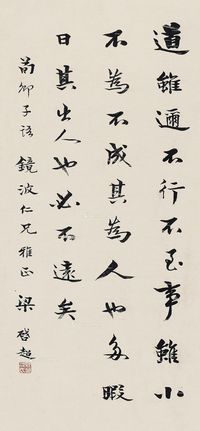 道雖邇不行不至事雖小
不為不成其為人也多暇
日其出人也必不遠矣
荀卿子語 鏡波仁兄雅正 梁啓超